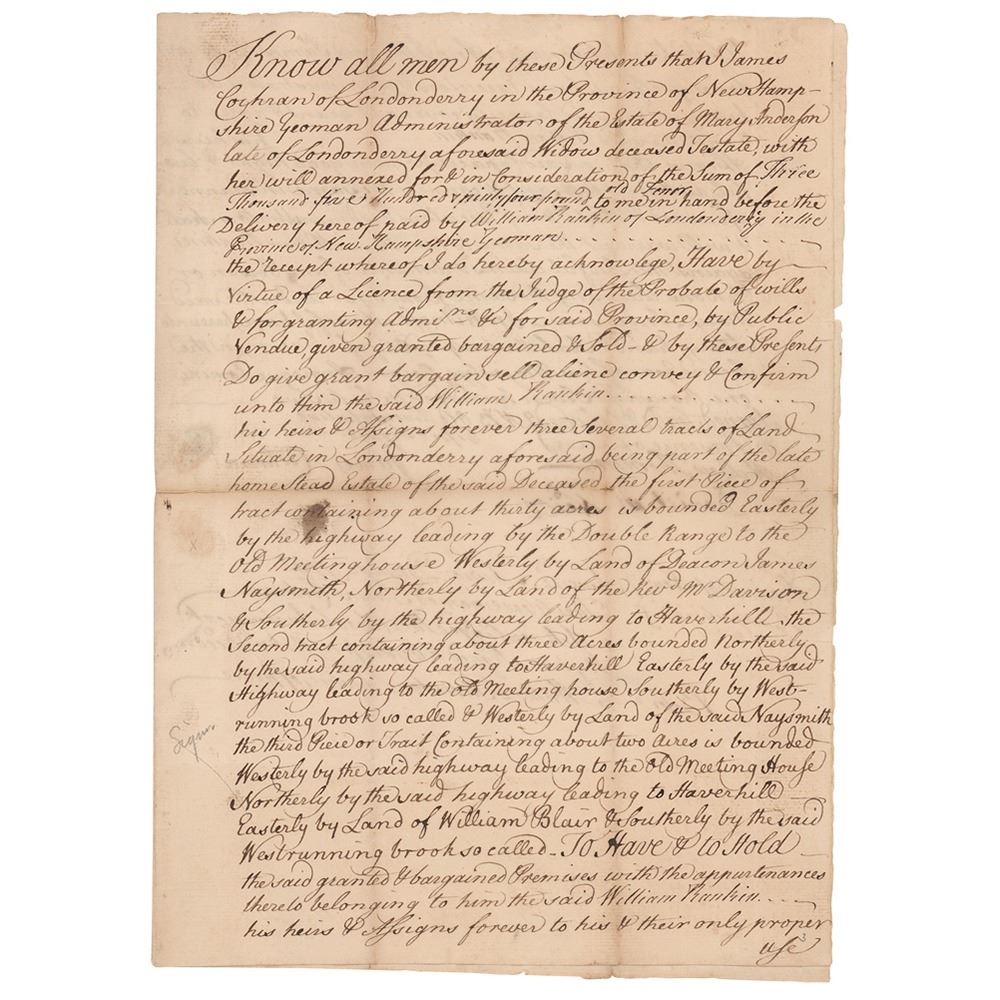 Know all men by these Presents that I James
Cochran of Londonderry in the Province of New Hamp-
shire Yeoman Administrator of the Estate of Mary Anderson
late of Londonderry aforesaid Widow deceased Testate, with
her will annexed for & in Consideration of the Sum of Three
Thousand five Hundred & ninty four pound old Tenor to me in hand before the
Delivery hereof paid by William Rankin of Londonderry in the
Province of New Hampshire Yeoman
the receipt whereof I do hereby acknowlege, Have by
Virtue of a Licence from the Judge of the Probate of wills
& for granting Admi.ns &c for said Province, by Public
Vendue, given granted bargained & Sold - & by these Presents
Do give grant bargain sell aliene convey & Confirm
unto Him the said William Rankin
his heirs & Assigns forever three several tracts of Land
Situate in Londonderry aforesaid being part of the late
homestead Estate of the said Deceased the first Piece of
tract containing about thirty acres is bounded Easterly
by the highway leading by the Double Range to the
Old Meetinghouse Westerly by Land of Deacon James
Naysmith, Northerly by Land of the Revd Mr Davison
& Southerly by the highway leading to Haverhill the
Second tract containing about three Acres bounded Northerly
by the said highway leading to Haverhill Easterly by the said
Highway leading to the old Meeting house Southerly by West-
running brook so called & Westerly by Land of the said Naysmith
the third Piece or Tract Containing about two Acres is bounded
Westerly by the said highway leading to the Old Meeting House
Northerly by the said highway leading to Haverhill
Easterly by Land of William Blair & Southerly by the said
Westrunning brook so called - To Have & to Hold
the said granted & bargained Premises with the appurtenances
thereto belonging to him the said William Rankin
his heirs & Assigns forever to his & their only proper
use